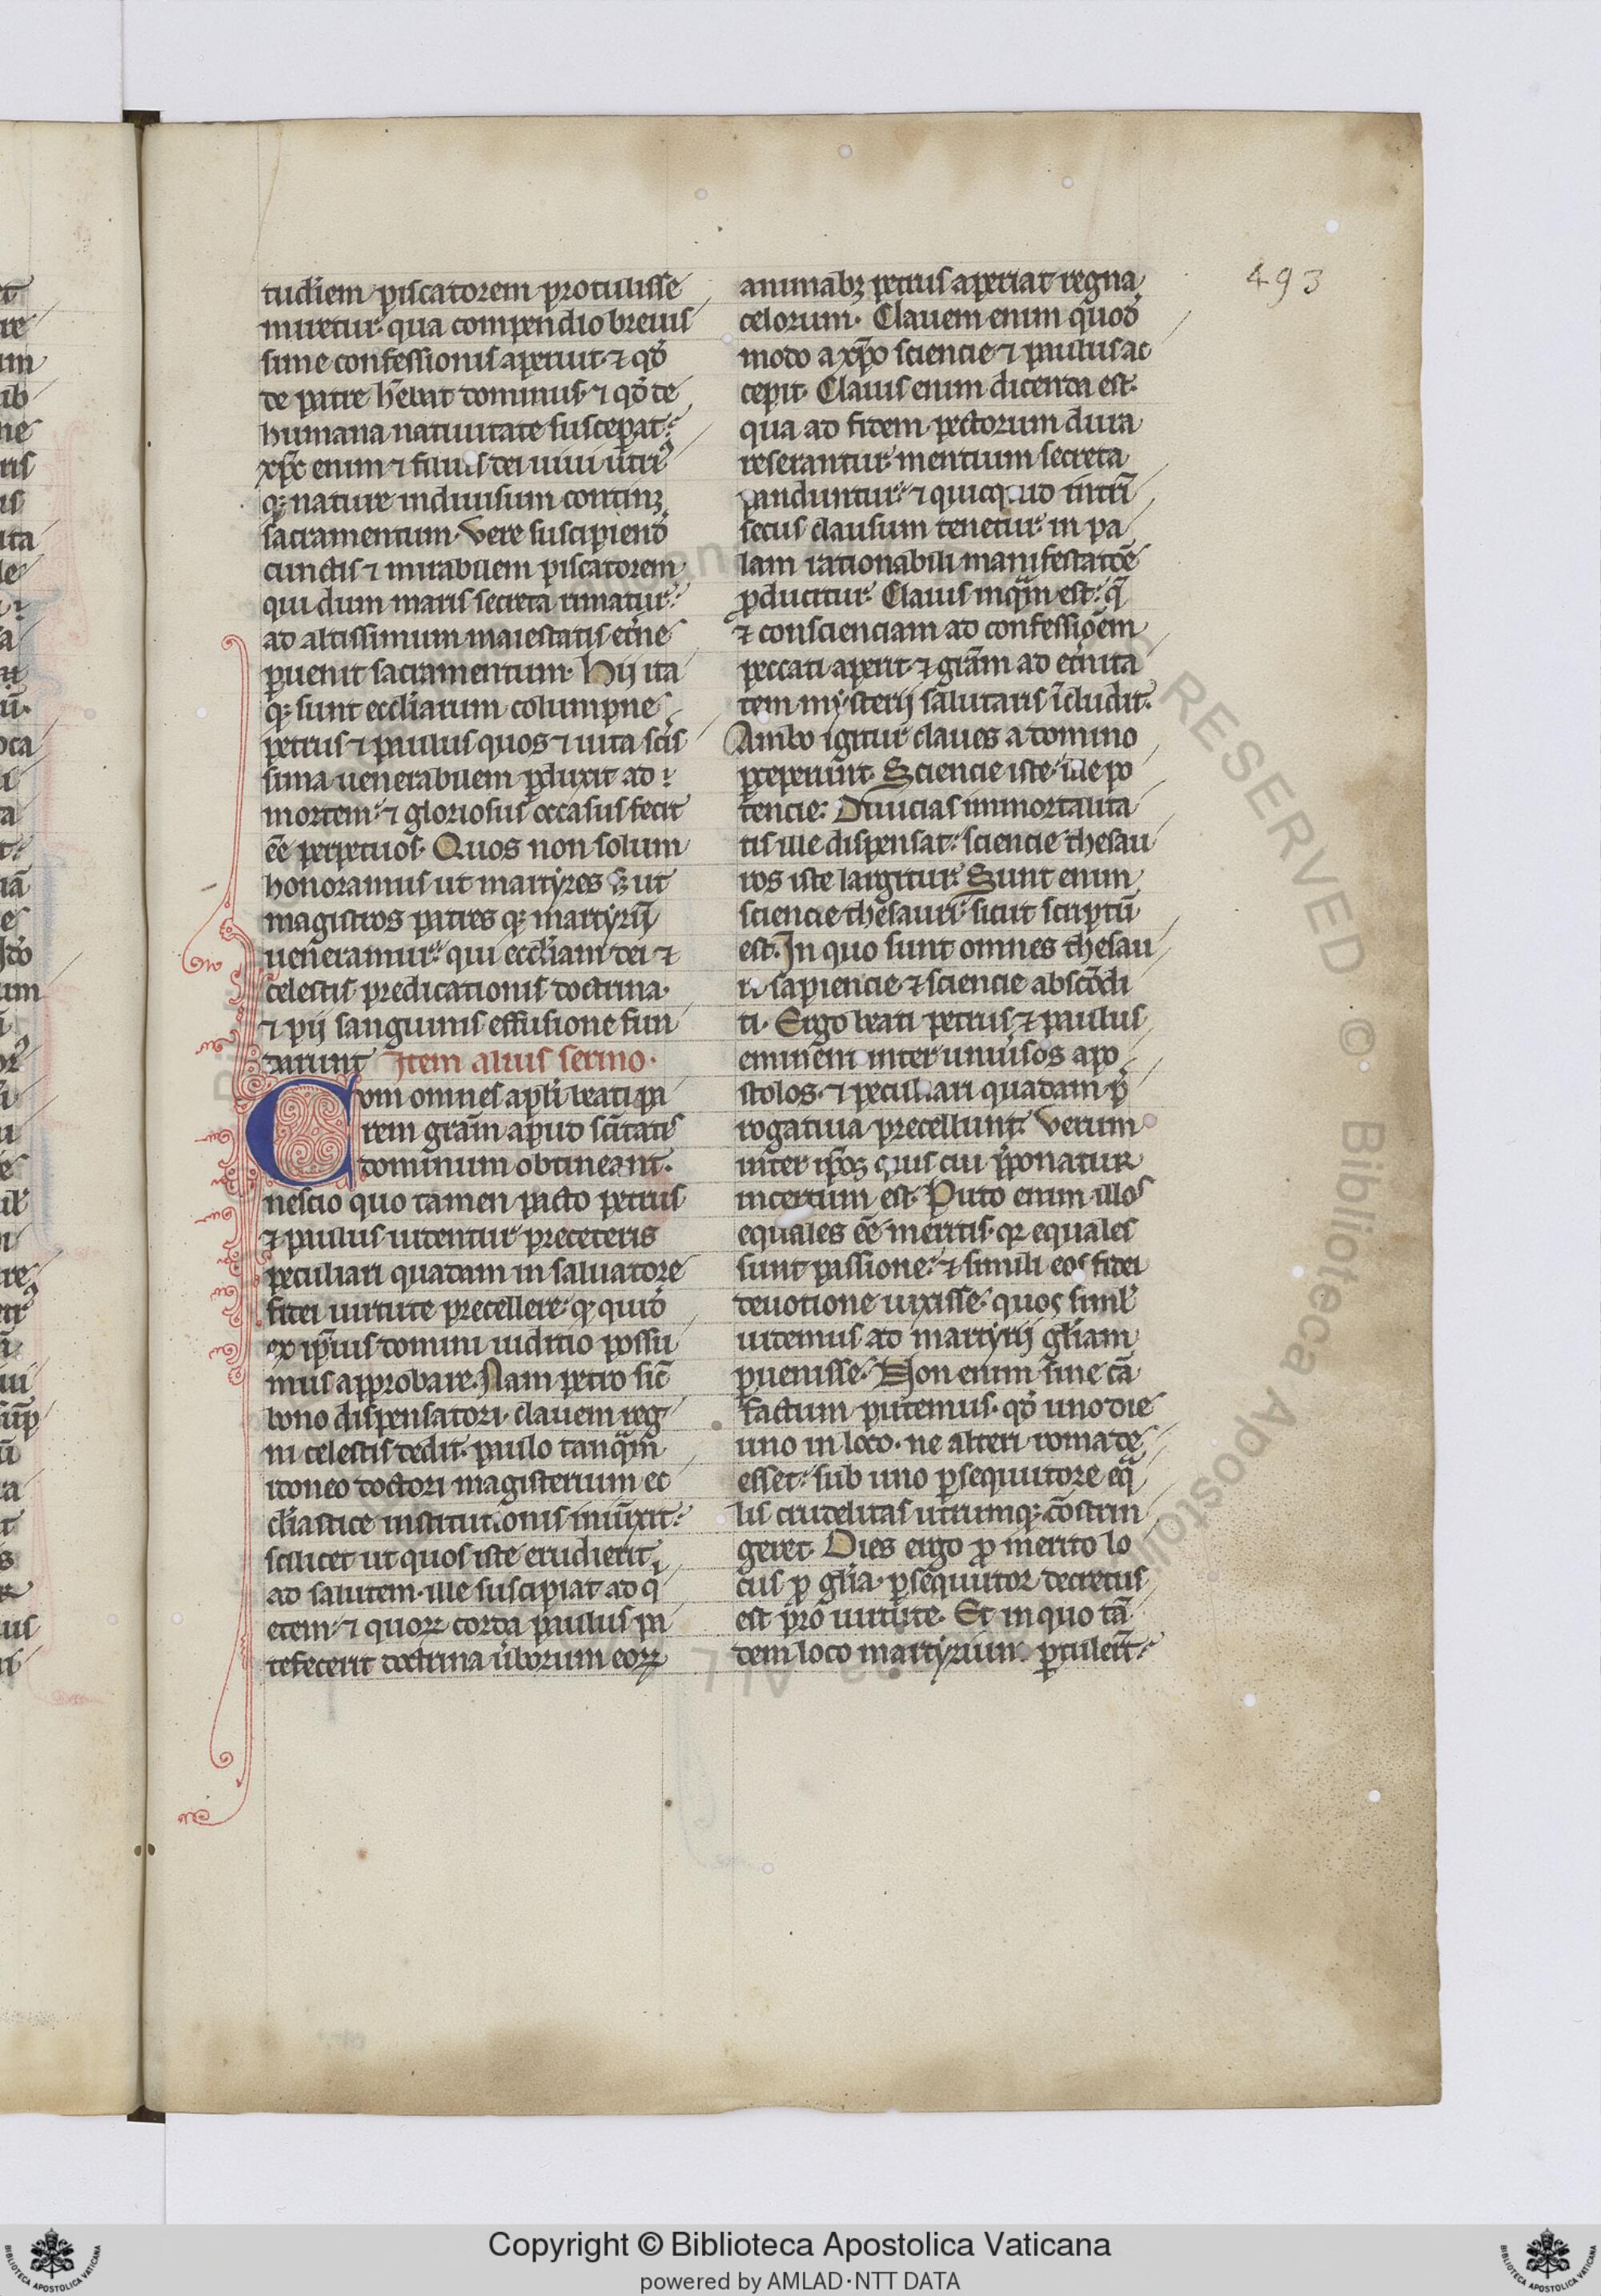 493
tudiem piscatorem protulisse
miretur qua compendio breuis
sime confessionis aperuit ⁊ qđ
de patre hēbat dominus ⁊ qđ de
humana natiuitate susceperat
xp̄c enim ⁊ filius dei uiui utri
q; nature indiuisum continꝫ
sacramentum. Vere suscipiend
cunctis ⁊ mirabilem piscatorem
qui dum maris secreta rimatur
ad altissimum maiestatis et̄ne
ꝑuenit sacramentum. Hij ita
q; sunt eccl̄iarum columpne
petrus ⁊ paulus quos ⁊ uita scīs
sima uenerabilem ꝑduxit ad
mortem ⁊ gloriosus occasus fecit
ēē perpetuos. Quos non solum
honoramus ut martyres ꝫ ut
magistros patres q; martyrū
ueneramur qui eccl̄iam dei ⁊
celestis predicationis doctrina
⁊ pij sanguinis effusione fun
darunt Item alius sermo.
Cvm omnes apl̄i beati pa
rem gr̄am apud sc̄itatis
dominum obtineant.
nescio quo tamen pacto petrus
⁊ paulus uidentur pre ceteris
peculiari quadam in saluatore
fidei uirtute precellere q; quid
ex ip̄ius domini iuditio possu
mus approbare. Nam petro sic̄
bono dispensatori clauem reg
ni celestis dedit. paulo tanq̄m
idoneo doctori magisterium ec
cl̄iastice institutionis iniūxit
scilicet ut quos iste erudierit
ad salutem ille suscipiat ad q
etem ⁊ quoꝝ corda paulus pa
tefecerit doctrina ūborum eoꝝ
animabꝫ petrus aperiat regna
celorum. Clauem enim quod
modo a xp̄o sciencie ⁊ paulus ac
cepit. Clauis enim dicenda est
qua ad fidem pectorum dura
reserantur mentium secreta
panduntur ⁊ quicquid intrī
secus clausum tenetur in pa
lam rationabili manifestatōe
ꝓducitur. Clauis inq̄m est q̄
⁊ conscienciam ad confessiōem
peccati aperit ⁊ gr̄am ad et̄nita
tem mysterij salutaris īcludit.
Ambo igitur claues a domino
ꝑceperunt. Sciencie iste ille po
tencie. Diuicias immortalita
tis ille dispensat sciencie thesau
ros iste largitur. Sunt enim
sciencie thesauri sicut scriptū
est. In quo sunt omnes thesau
ri sapiencie ⁊ sciencie abscōdi
ti. Ergo beati petrus ⁊ paulus
eminēnt inter uniūsos apo
stolos. ⁊ peculiari quadam p̄
rogatiua precellunt. Verum
inter ip̄os quis cui p̄ponatur
incertum est. Puto enim illos
equales ēē meritis qr equales
sunt passione ⁊ simili eos fidei
deuotione uixisse quos siml̄
uidemus ad martyrij gl̄iam
ꝑuenisse. Non enim sine cā
factum putemus. qđ uno die
uno in loco. ne alteri roma de
esset sub uno ꝑsequutore eq̄
lis crudelitas utrumq; cōstrin
geret. Dies ergo ꝓ merito lo
cus ꝓ gl̄ia ꝑsequutor decretus
est pro uirtute. Et in quo tā
dem loco martyrium ꝑtulert̄
Copyright © Biblioteca Apostolica Vaticana
powered by AMLAD·NTT DATA